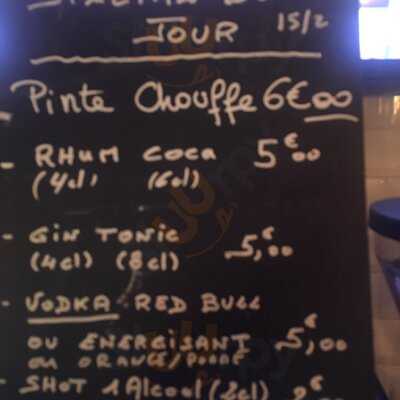 TOUR 15/2
- Pinte Chouffe 6€00
- RHUM COCA 5€00
(4cl) (16cl)
- GIN TONIC 5,€00
(4cl) (8cl)
- VODKA RED BULL
OU ENERGISANT 5,€00
OU ORANGE/POMME
- SHOT 1 Alcool (2cl)